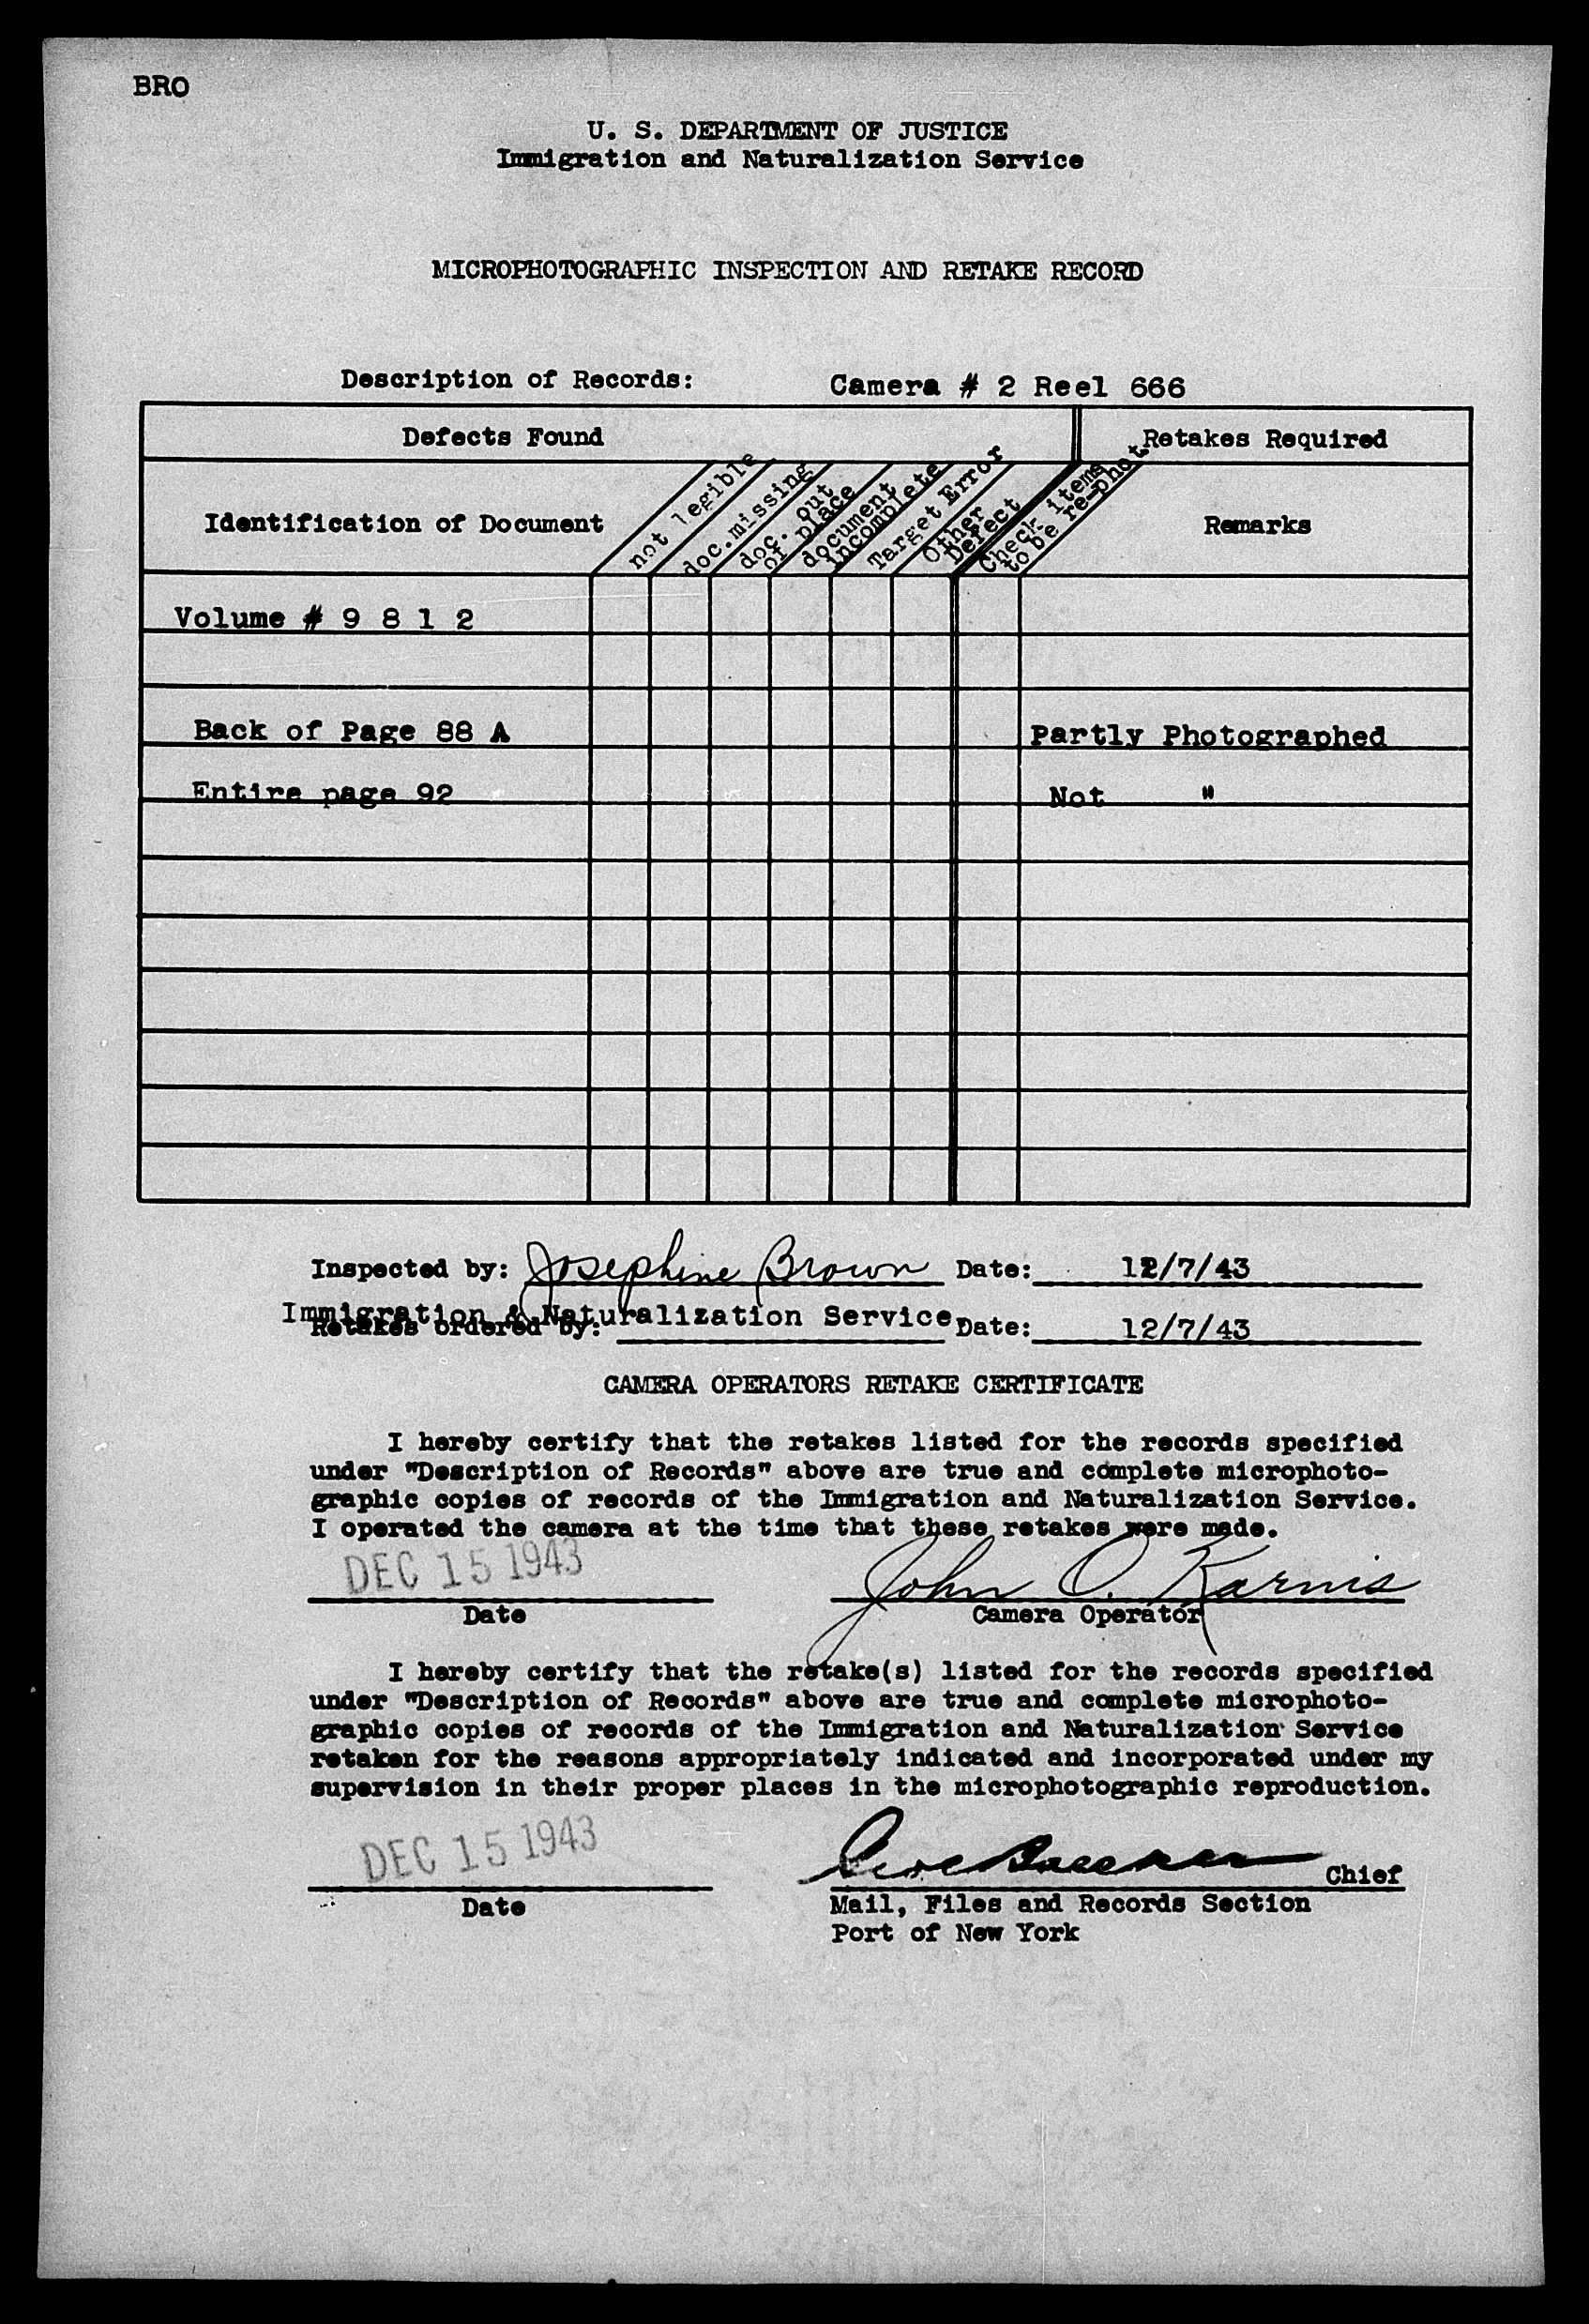 BRO
U. S. DEPARTMENT OF JUSTICE
Immigration and Naturalization Service
MICROPHOTOGRAPHIC INSPECTION AND RETAKE RECORD
Description of Records: Camera # 2 Reel 666
Defects Found Retakes Required
Identification of Document
not legible
doc.missing
doc. out
of place
document
incomplete
Target Error
Other
Defect
Check items
to be re-phot.
Remarks
Volume # 9 8 1 2
Back of Page 88 A Partly Photographed
Entire page 92 Not "
Inspected by: Josephine Brown Date: 12/7/43
Immigration & Naturalization Service
Retakes ordered by: Date: 12/7/43
CAMERA OPERATORS RETAKE CERTIFICATE
I hereby certify that the retakes listed for the records specified
under "Description of Records" above are true and complete microphoto-
graphic copies of records of the Immigration and Naturalization Service.
I operated the camera at the time that these retakes were made.
DEC 15 1943 John O. Karnis
Date Camera Operator
I hereby certify that the retake(s) listed for the records specified
under "Description of Records" above are true and complete microphoto-
graphic copies of records of the Immigration and Naturalization Service
retaken for the reasons appropriately indicated and incorporated under my
supervision in their proper places in the microphotographic reproduction.
DEC 15 1943 Chief
Date Mail, Files and Records Section
Port of New York